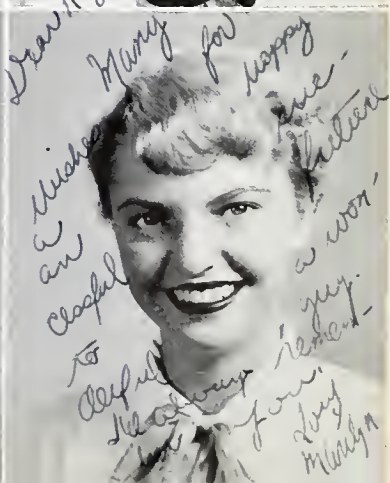 Dear
Many
wishes for
a happy
an suc-
cessful future
to a won-
derful guy.
I'll always remem-
you.
Love
Marilyn